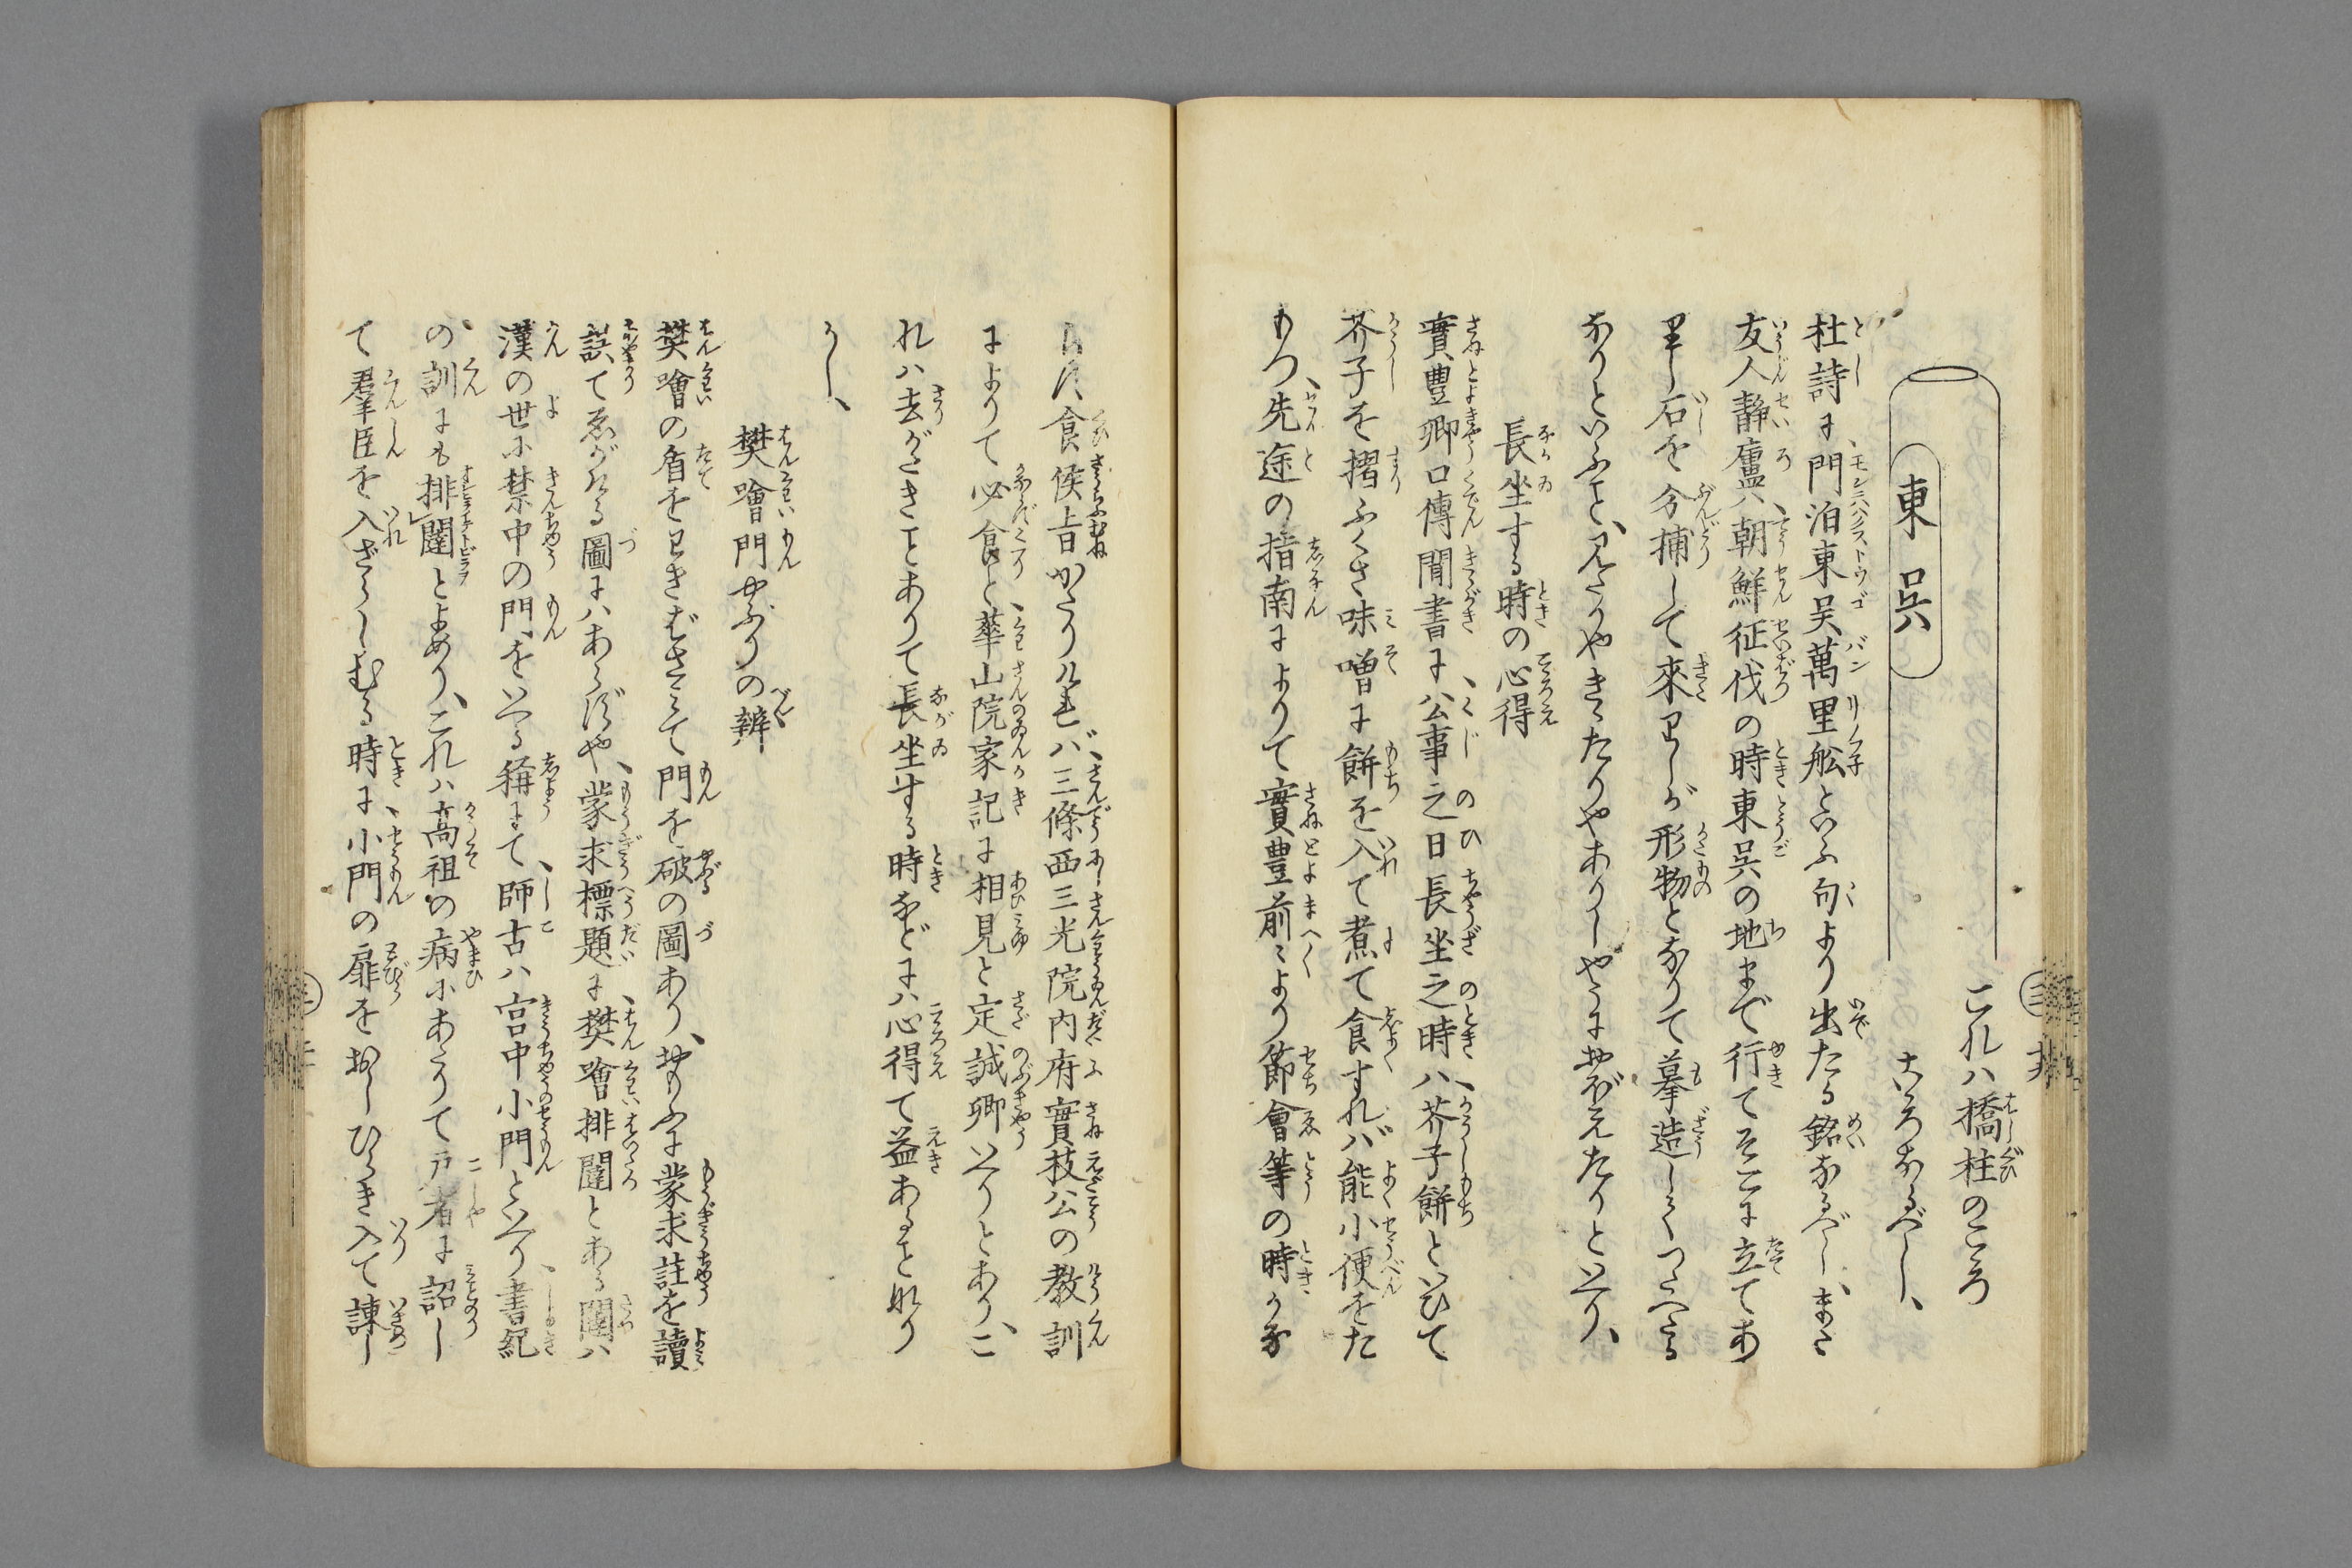 東呉
これハ橋柱のころ
さいろなるべし、
杜詩に門泊東吴萬里舩といふ句より出たる銘なるべし、また
友人静廬ハ、朝鮮征伐の時東呉の地まで行てそこに立てあ
りし石を分捕して來りしが形物となりて摹造しくつたへたる
なりといふと、見たりやきゝたりやありしやうにおぼえたりといへり、
長坐する時の心得
實豊卿口傳聞書に、公事之日長坐之時ハ、芥子餅といひて
芥子を摺ふくさ味噌に餅を入て煮て食すれバ能小便をた
もつ、先途の指南によりて實豊前〻より節會等の時かな
らず食候旨かたりけれバ、三條西三光院内府實枝公の教訓
によりて必食と、華山院家記に相見と定誠卿いへりとあり、こ
れハ去がたきことありて長坐する時などにハ心得て益あることなり
かし、
樊噲門やぶりの辨
樊噲の盾をわきばさみて門を破の圖あり、おもふに蒙求註を讀
誤てゑがける圖にハあらずや、蒙求標題に、樊噲排闥とある闥ハ
漢の世に禁中の門をいへる稱にて、師古ハ宮中小門といへり、書紀
の訓にも排闥とよめり、これハ高祖の病にあたりて戸者に詔し
て羣臣を入ざらしむる時に、小門の扉をおしひらき入て諌し